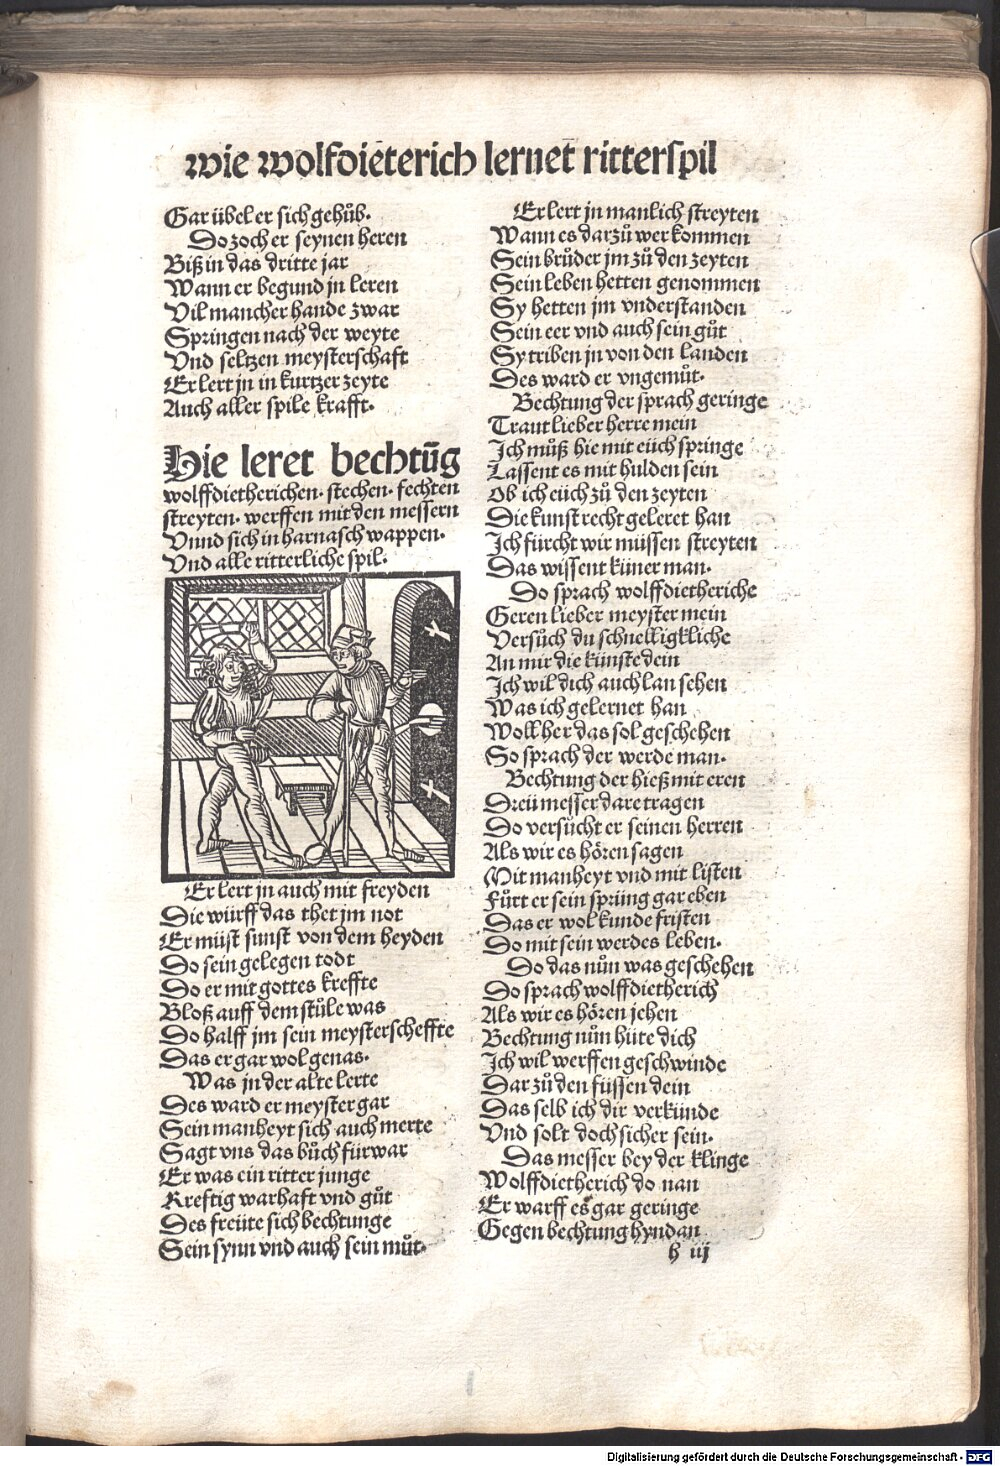 wie wolfdieterich lernet ritterspil
Gar übel er sich gehůb.
Do zoch er seynen heren
Biß in das dritte jar
Wann er begund jn leren
Vil mancher hande zwar
Springen nach der weyte
Vnd seltzen meysterschaft
Er lert jn in kurtzer zeyte
Auch aller spile krafft.
Hie leret bechtūg
wolffdietherichen. stechen. fechten
streyten. werffen mit den messern
Vnnd sich in harnasch wappen.
Vnd alle ritterliche spil.
Er lert jn auch mit freyden
Die würff das thet jm not
Er müst sunst von dem heyden
Do sein gelegen todt
Do er mit gottes kreffte
Bloß auff dem stůle was
Do halff jm sein meysterscheffte
Das er gar wol genas.
Was jn der alte lerte
Des ward er meyster gar
Sein manheyt sich auch merte
Sagt vns das bůch fürwar
Er was ein ritter junge
Kreftig warhaft vnd gůt
Des freüte sich bechtunge
Sein synn vnd auch sein můt.
Er lert jn manlich streyten
Wann es darzů wer kommen
Sein brůder jm zů den zeyten
Sein leben hetten genommen
Sy hetten jm vnderstanden
Sein eer vnd auch sein gůt
Sy triben jn von den landen
Des ward er vngemůt.
Bechtung der sprach geringe
Traut lieber herre mein
Ich můß hie mit eüch springe
Lassent es mit hulden sein
Ob ich eüch zů den zeyten
Die kunst recht geleret han
Ich fürcht wir müssen streyten
Das wissent küner man.
Do sprach wolffdietheriche
Geren lieber meyster mein
Versůch du schnelligkliche
An mir die künste dein
Ich wil dich auch lan sehen
Was ich gelernet han
Woll her das sol geschehen
So sprach der werde man.
Bechtung der hieß mit eren
Dreü messer dare tragen
Do versůcht er seinen herren
Als wir es hören sagen
Mit manheyt vnd mit listen
Fůrt er sein sprüng gar eben
Das er wol kunde fristen
Do mit sein werdes leben.
Do das nůn was geschehen
Do sprach wolffdietherich
Als wir es hören jehen
Bechtung nůn hüte dich
Ich wil werffen geschwinde
Dar zů den füssen dein
Das selb ich dir verkünde
Vnd solt doch sicher sein.
Das messer bey der klinge
Wolffdietherich do nan
Er warff es gar geringe
Gegen bechtung hyndan
h iij
Digitalisierung gefördert durch die Deutsche Forschungsgemeinschaft - DFG